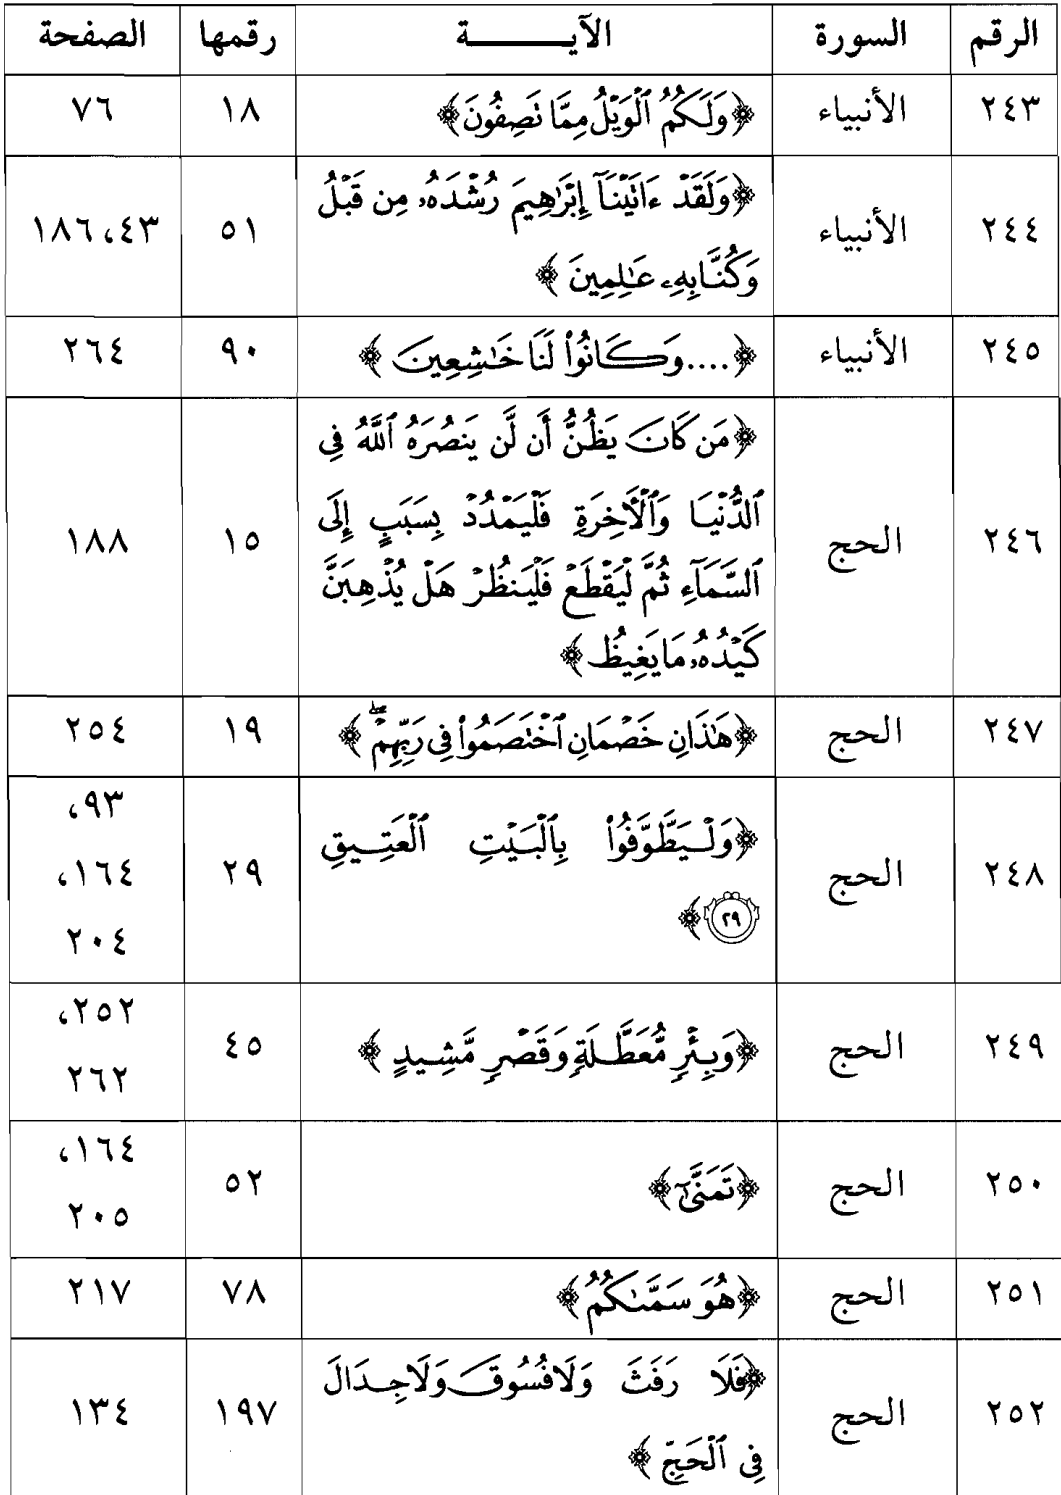 الرقم السورة الآيـــــــــة رقمها الصفحة
٢٤٣ الأنبياء ﴿وَلَكُمُ ٱلْوَيْلُ مِمَّا تَصِفُونَ﴾ ١٨ ٧٦
٢٤٤ الأنبياء ﴿وَلَقَدْ ءَاتَيْنَآ إِبْرَٰهِيمَ رُشْدَهُۥ مِن قَبْلُ ٥١ ٤٣، ١٨٦
وَكُنَّا بِهِۦ عَٰلِمِينَ ﴾
٢٤٥ الأنبياء ﴿....وَكَانُوا۟ لَنَا خَٰشِعِينَ ﴾ ٩٠ ٢٦٤
٢٤٦ الحج ﴿مَن كَانَ يَظُنُّ أَن لَّن يَنصُرَهُ ٱللَّهُ فِى ١٥ ١٨٨
ٱلدُّنْيَا وَٱلْأَخِرَةِ فَلْيَمْدُدْ بِسَبَبٍ إِلَى
ٱلسَّمَآءِ ثُمَّ لْيَقْطَعْ فَلْيَنظُرْ هَلْ يُذْهِبَنَّ
كَيْدُهُۥ مَا يَغِيظُ ﴾
٢٤٧ الحج ﴿هَٰذَانِ خَصْمَانِ ٱخْتَصَمُوا۟ فِى رَبِّهِمْ ۖ ﴾ ١٩ ٢٥٤
٢٤٨ الحج ﴿وَلْيَطَّوَّفُوا۟ بِٱلْبَيْتِ ٱلْعَتِيقِ ٢٩ ٩٣،
١٦٤،
(٢٩)﴾ ٢٠٤
٢٤٩ الحج ﴿وَبِئْرٍ مُّعَطَّلَةٍ وَقَصْرٍ مَّشِيدٍ ﴾ ٤٥ ٢٥٢،
٢٦٢
٢٥٠ الحج ﴿تَمَنَّىٰٓ﴾ ٥٢ ١٦٤،
٢٠٥
٢٥١ الحج ﴿هُوَ سَمَّىٰكُمُ ﴾ ٧٨ ٢١٧
٢٥٢ الحج ﴿فَلَا رَفَثَ وَلَا فُسُوقَ وَلَا جِدَالَ ١٩٧ ١٣٤
فِى ٱلْحَجِّ ﴾